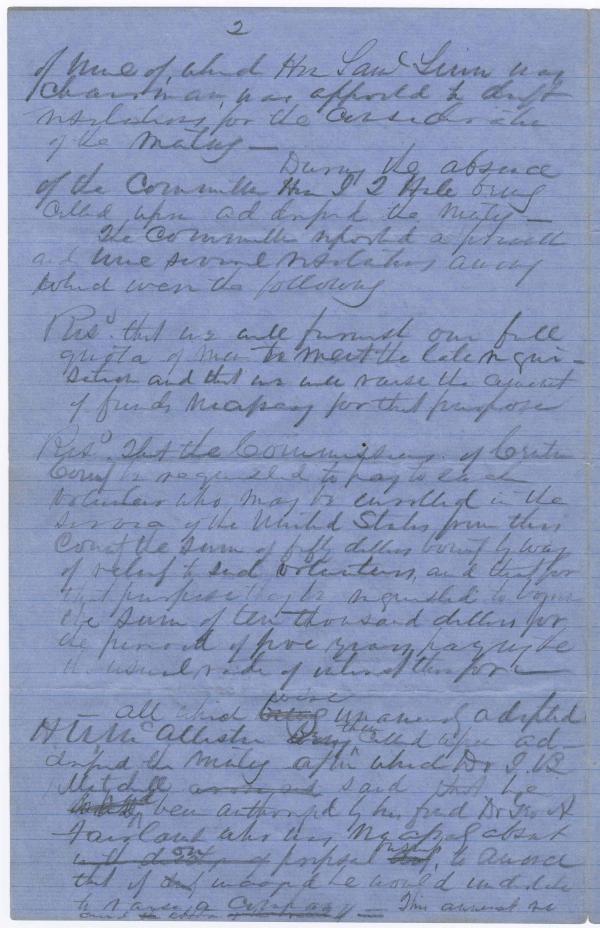 2
of nine of, which Hon Saml Linn was
chairman, was appointed to draft
resolutions for the consideration
of the meeting —
During the absence
of the Committee Hon J T Hale being
called upon addressed the meeting —
The Committee reported a preamble
and nine several resolutions among
which were the following
Resd. that we will furnish our full
quota of men to meet the late requi-
sition and that we will raise the amount
of funds necessary for that purpose
Resd. That the Commissioners of Centre
County be requested to pay to each
volunteer who may be enrolled in the
service of the United States from this
County the sum of fifty dollars bounty by way
of relief to said volunteers, and that for
that purpose they be requested to borrow
the sum of ten thousand dollars for
the period of five years, paying be
the usual rate of interest therefor —
all which being were unanimously adopted
H. N. McAllister being then called upon ad-
dressed the meeting after which Dr J. B
Mitchell said that he
had been authorized by his friend Dr Geo A
Fairlamb who was necessarily absent
on to announce
that if he would undertake
to raise a company — This announ